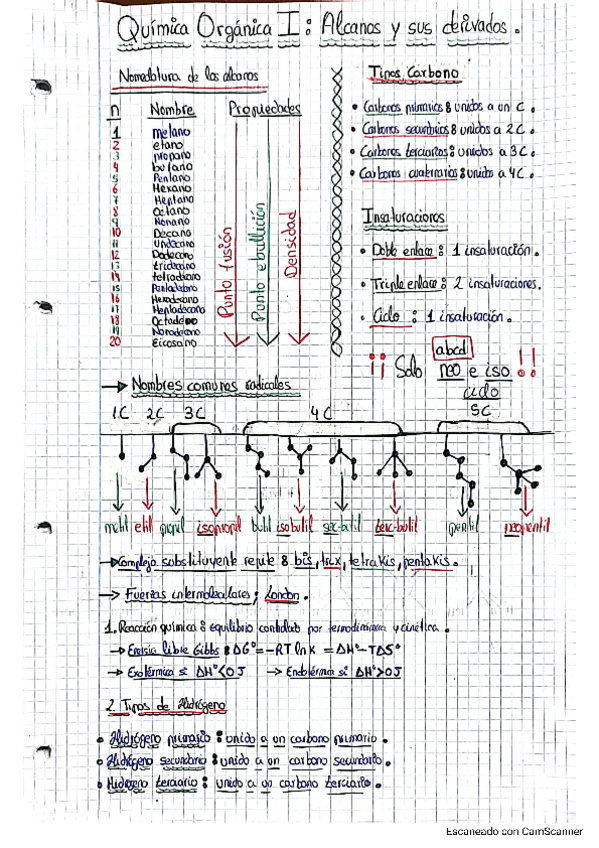 Química Orgánica I: Alcanos y sus derivados.
Nomenclatura de los alcanos
n Nombre Propiedades
1 metano
2 etano
3 propano
4 butano
5 Pentano
6 Hexano
7 Heptano
8 Octano
9 Nonano
10 Decano
11 Undecano
12 Dodecano
13 tridecano
14 tetradecano
15 Pentadecano
16 Hexadecano
17 Heptadecano
18 Octadecano
19 Nonadecano
20 Eicosano
Punto fusión
Punto ebullición
Densidad
Tipos Carbono
• Carbonos primarios: unidos a un C.
• Carbonos secundarios: unidos a 2C.
• Carbonos terciarios: unidos a 3C.
• Carbonos cuaternarios: unido a 4C.
Insaturaciones
• Doble enlace: 1 insaturación.
• Triple enlace: 2 insaturaciones.
• Ciclo: 1 insaturación.
abcd
¡¡ Solo neo e iso !!
ciclo
→ Nombres comunes radicales
1C 2C 3C 4C 5C
metil etil propil isopropil butil isobutil sec-butil terc-butil pentil neopentil
→ Complejo substituyente repite: bis, tris, tetrakis, pentakis.
→ Fuerzas intermoleculares; London.
1. Reacción química: equilibrio controlado por termodinámica y cinética.
→ Energía libre Gibbs: ΔG° = -RT ln K = ΔH° - TΔS°
→ Exotérmica si ΔH° < 0 J → Endotérmica si ΔH° > 0 J
2 Tipos de Hidrógeno
• Hidrógeno primario: unido a un carbono primario.
• Hidrógeno secundario: unido a un carbono secundario.
• Hidrógeno terciario: unido a un carbono terciario.
Escaneado con CamScanner